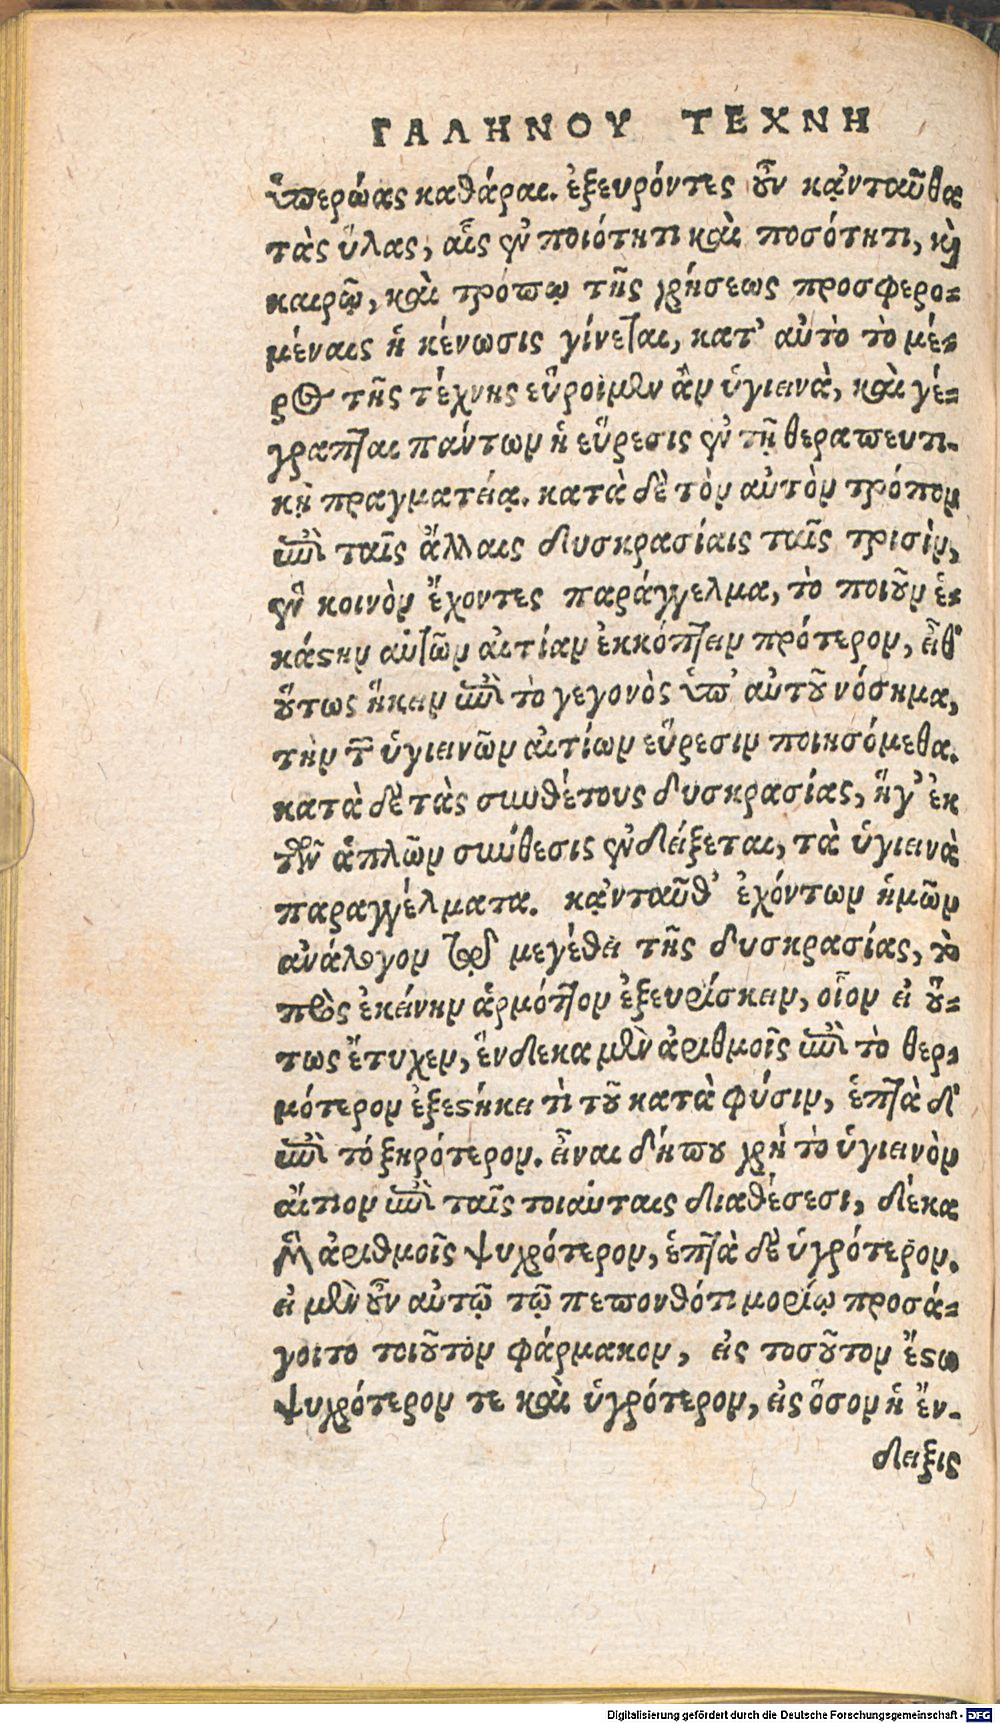 ΓΑΛΗΝΟΥ ΤΕΧΝΗ
ὑπερώας καθάραι. ἐξευρόντες οὖν κᾀνταῦθα
τὰς ὕλας, αἷς ἐν ποιότητι καὶ ποσότητι, καὶ
καιρῷ, καὶ τρόπῳ τῆς χρήσεως προσφερο-
μέναις ἡ κένωσις γίνεται, κατ' αὐτὸ τὸ μέ-
ρος τῆς τέχνης εὕροιμεν ἂν ὑγιεινὰ, καὶ γέ-
γραπται πάντων ἡ εὕρεσις ἐν τῇ θεραπευτι-
κῇ πραγματείᾳ. κατὰ δὲ τὸν αὐτὸν τρόπον
ἐπὶ ταῖς ἄλλαις δυσκρασίαις ταῖς τρισὶν,
ἓν κοινὸν ἔχοντες παράγγελμα, τὸ ποιοῦν ἑ-
κάστην αὐτῶν αἰτίαν ἐκκόπτειν πρότερον, εἶθ'
οὕτως ἥκειν ἐπὶ τὸ γεγονὸς ὑπ' αὐτοῦ νόσημα,
τὴν τῶν ὑγιεινῶν αἰτίων εὕρεσιν ποιησόμεθα.
κατὰ δὲ τὰς συνθέτους δυσκρασίας, ἥ γ' ἐκ
τῶν ἁπλῶν σύνθεσις ἐνδείξεται, τὰ ὑγιεινὰ
παραγγέλματα. κᾀνταῦθ' ἐχόντων ἡμῶν
ἀνάλογον τῷ μεγέθει τῆς δυσκρασίας, τὸ
πρὸς ἐκείνην ἁρμόττον ἐξευρίσκειν, οἷον εἰ οὕ-
τως ἔτυχεν, ἕνδεκα μὲν ἀριθμοῖς ἐπὶ τὸ θερ-
μότερον ἐξεστήκει τὶ τοῦ κατὰ φύσιν, ἑπτὰ δ'
ἐπὶ τὸ ξηρότερον. εἶναι δήπου χρὴ τὸ ὑγιεινὸν
αἴτιον ἐπὶ ταῖς τοιαύταις διαθέσεσι, δέκα
μὲν ἀριθμοῖς ψυχρότερον, ἑπτὰ δὲ ὑγρότερον.
εἰ μὲν οὖν αὐτῷ τῷ πεπονθότι μορίῳ προσά-
γοιτο τοιοῦτον φάρμακον, εἰς τοσοῦτον ἔστω
ψυχρότερον τε καὶ ὑγρότερον, εἰς ὅσον ἡ ἔν-
δειξις
Digitalisierung gefördert durch die Deutsche Forschungsgemeinschaft - DFG